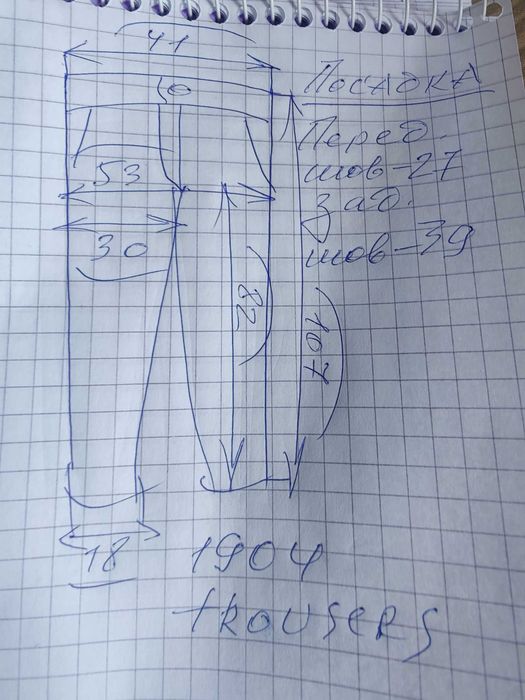 41
Посадка
Перед.
шов-27
зад.
шов-39
53
30
82
107
18
1904
trousers